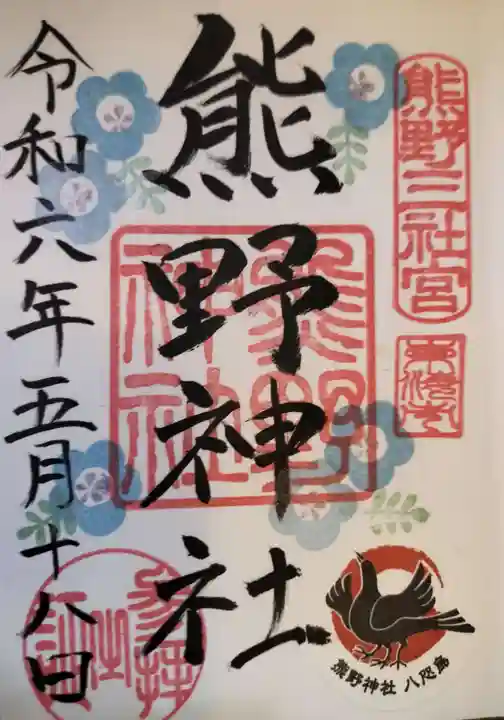 熊野三社宮
熊野神社
熊野神社
令和六年五月十八日
熊野神社 八咫烏